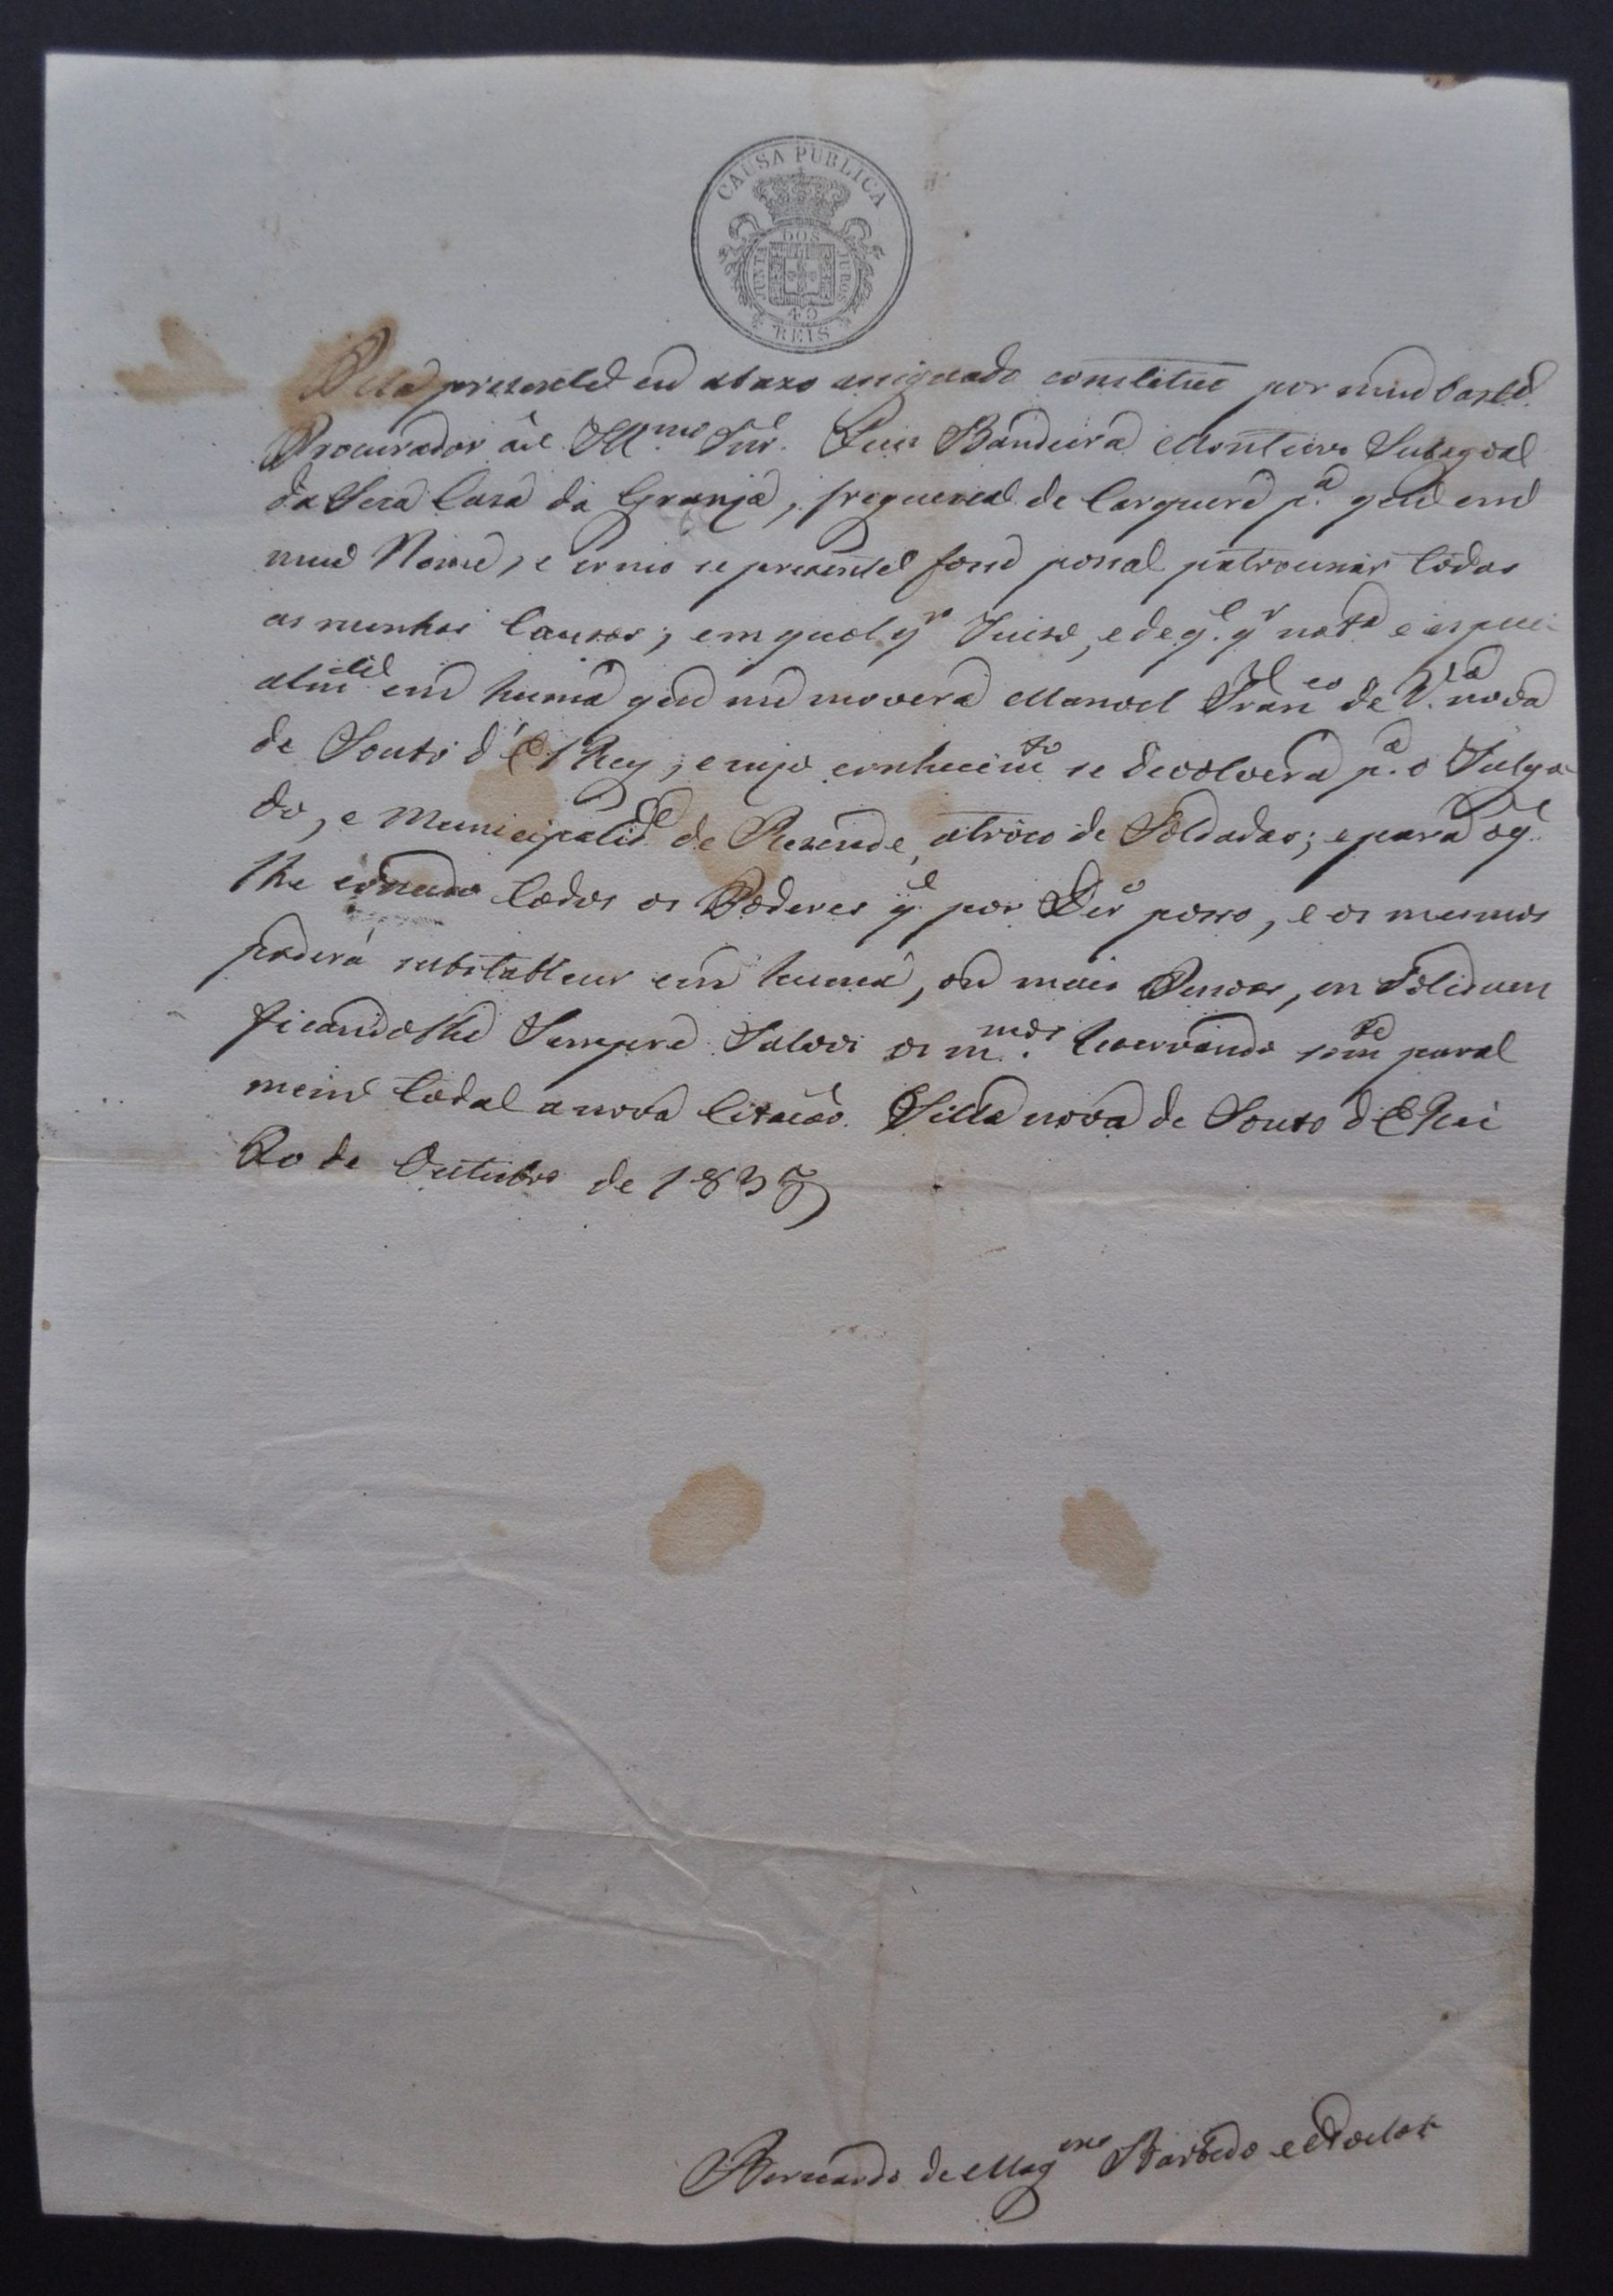 CAUSA PUBLICA
JUNTA DOS JUROS
40
REIS
Pela prezente eu abaxo asignado constituo por meu baste.
Procurador ao Illmo Snr. Luis Bandeira Monteiro Subagoal
da Sera Casa da Granja, freguezia de Carquere pa. que em
meu Nome, e como se prezente fose posa patrocinar todas
as minhas Cauzas, em qualqr Juizo, e de ql. qr nata e especi
almte em huma que me movera Manoel Franco de Va. nova
de Souto d'El Rey, e cujo conhecimto se devolvera pa. o Julga
do, e Municipalide de Rezende, atroco de Soldadas; e para oq.
lhe concedo todos os Poderes q. por Dro poso, e os mesmos
poderá substabelecer em huma, ou mais Pesoas, in Solidum
ficandolhe Sempre Salvos os mmos. Rezervando somte para
mim toda a nova Citacão. Villa nova de Souto d'El Rei
20 de Outubro de 1837
Bernardo de Mages Macedo